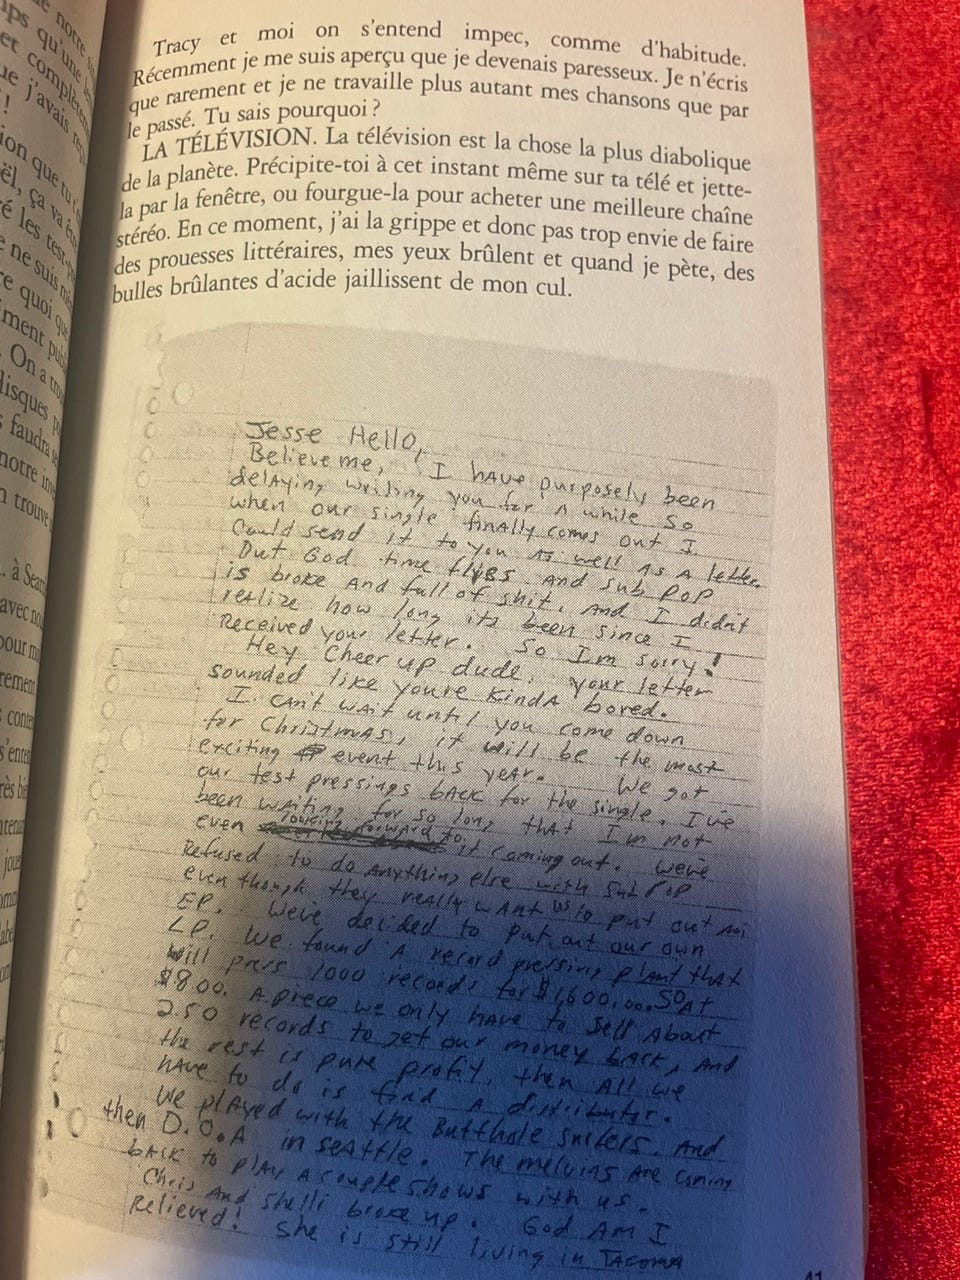 Tracy et moi on s'entend impec, comme d'habitude.
Récemment je me suis aperçu que je devenais paresseux. Je n'écris
que rarement et je ne travaille plus autant mes chansons que par
le passé. Tu sais pourquoi ?
LA TÉLÉVISION. La télévision est la chose la plus diabolique
de la planète. Précipite-toi à cet instant même sur ta télé et jette-
la par la fenêtre, ou fourgue-la pour acheter une meilleure chaîne
stéréo. En ce moment, j'ai la grippe et donc pas trop envie de faire
des prouesses littéraires, mes yeux brûlent et quand je pète, des
bulles brûlantes d'acide jaillissent de mon cul.
Jesse Hello,
Believe me, I have purposely been
delaying writing you for a while so
when our single finally comes out I
Could send it to you as well as a letter.
But God time flys and sub pop
is broke and full of shit, and I didn't
realize how long its been since I
Received your letter. So Im sorry!
Hey Cheer up dude, your letter
sounded like youre kinda bored.
I can't wait until you come down
for Christmas, it will be the most
exciting event this year. We got
our test pressings back for the single. I've
been waiting for so long that I'm not
even looking forward to it coming out. weve
Refused to do anything else with Sub Pop
even though they really want us to put out an
EP. Weve decided to put out our own
LP. We found a record pressing plant that
will press 1000 records for $1,600.00. So At
$8.00. Apiece we only have to sell about
2.50 records to get our money back, and
the rest is pure profit, then all we
have to do is find a distributor.
We played with the Butthole surfers. And
then D.O.A in seattle. The melvins are coming
back to play a couple shows with us.
Chris and Shelli broke up. God Am I
Relieved! She is still living in Tacoma
41